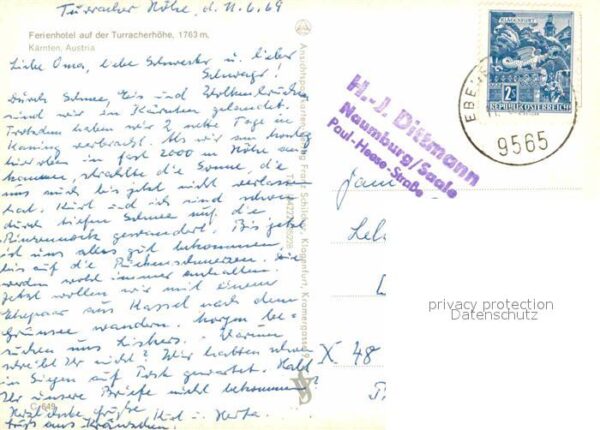 Turracher Höhe, d. 11.6.69
Ferienhotel auf der Turracherhöhe, 1763 m,
Kärnten, Austria
Liebe Oma, liebe Schwester u. lieber
Schwager!
Durch Schnee, Eis und
sind wir in Kärnten gelandet.
Trotzdem haben wir 2 nette Tage in
verbracht. Als wir am Montag
hier oben in fast 2000 m Höhe an-
kamen, strahlte die Sonne, die
uns auch bis jetzt nicht verlassen
hat. Kurt und ich sind schon
durch tiefen Schnee auf die
gewandert. Bis jetzt
ist uns alles gut bekommen,
bis auf die Rückenschmerzen. Die
werden wohl immer anhalten.
Jetzt wollen wir mit einem
Ehepaar aus Kassel nach dem
Grünsee wandern. Morgen be-
suchen uns Warum
schreibt Ihr nicht? Wir hatten schon
in Siegen auf Post gewartet. Habt
Ihr unsere Briefe nicht bekommen?
Herzliche Grüße Kurt u. Herta.
C 649
Ansichtskartenverlag Franz Schilcher, Klagenfurt, Kramergasse
H.-J. Ditzmann
Naumburg/Saale
Paul-Heese-Straße
KLAGENFURT
2 S
REPUBLIK ÖSTERREICH
EBE
9565
Fam
X 48
privacy protection
Datenschutz